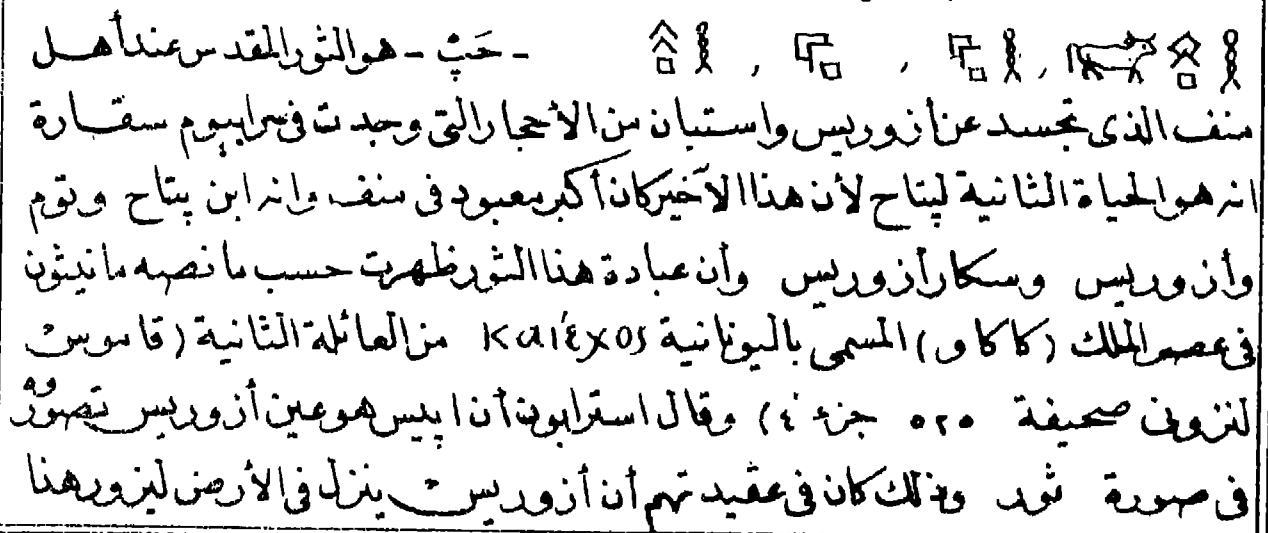 - حَپْ - هو الثور المقدس عند أهل
منف الذى تجسد عن أزوريس واستبان من الأحجار التى وجدت فى سرابيوم سقارة
انه هو الحياة الثانية لپتاح لأن هذا الآخير كان أكبر معبود فى منف وانه ابن پتاح وتوم
وأزوريس وسكار أزوريس وأن عبادة هذا الثور ظهرت حسب ما نصبه مانيثون
فى عصر الملك (كاكاو) المسمى باليونانية Καιέχος من العائلة الثانية (قاموس
لنزونى صحيفة ٥٢٥ جزء ٤) وقال استرابون أن ابيس هو عين أزوريس تصوروه
فى صورة ثور وذلك كان فى عقيدتهم أن أزوريس ينزل فى الأرض ليزور هنا